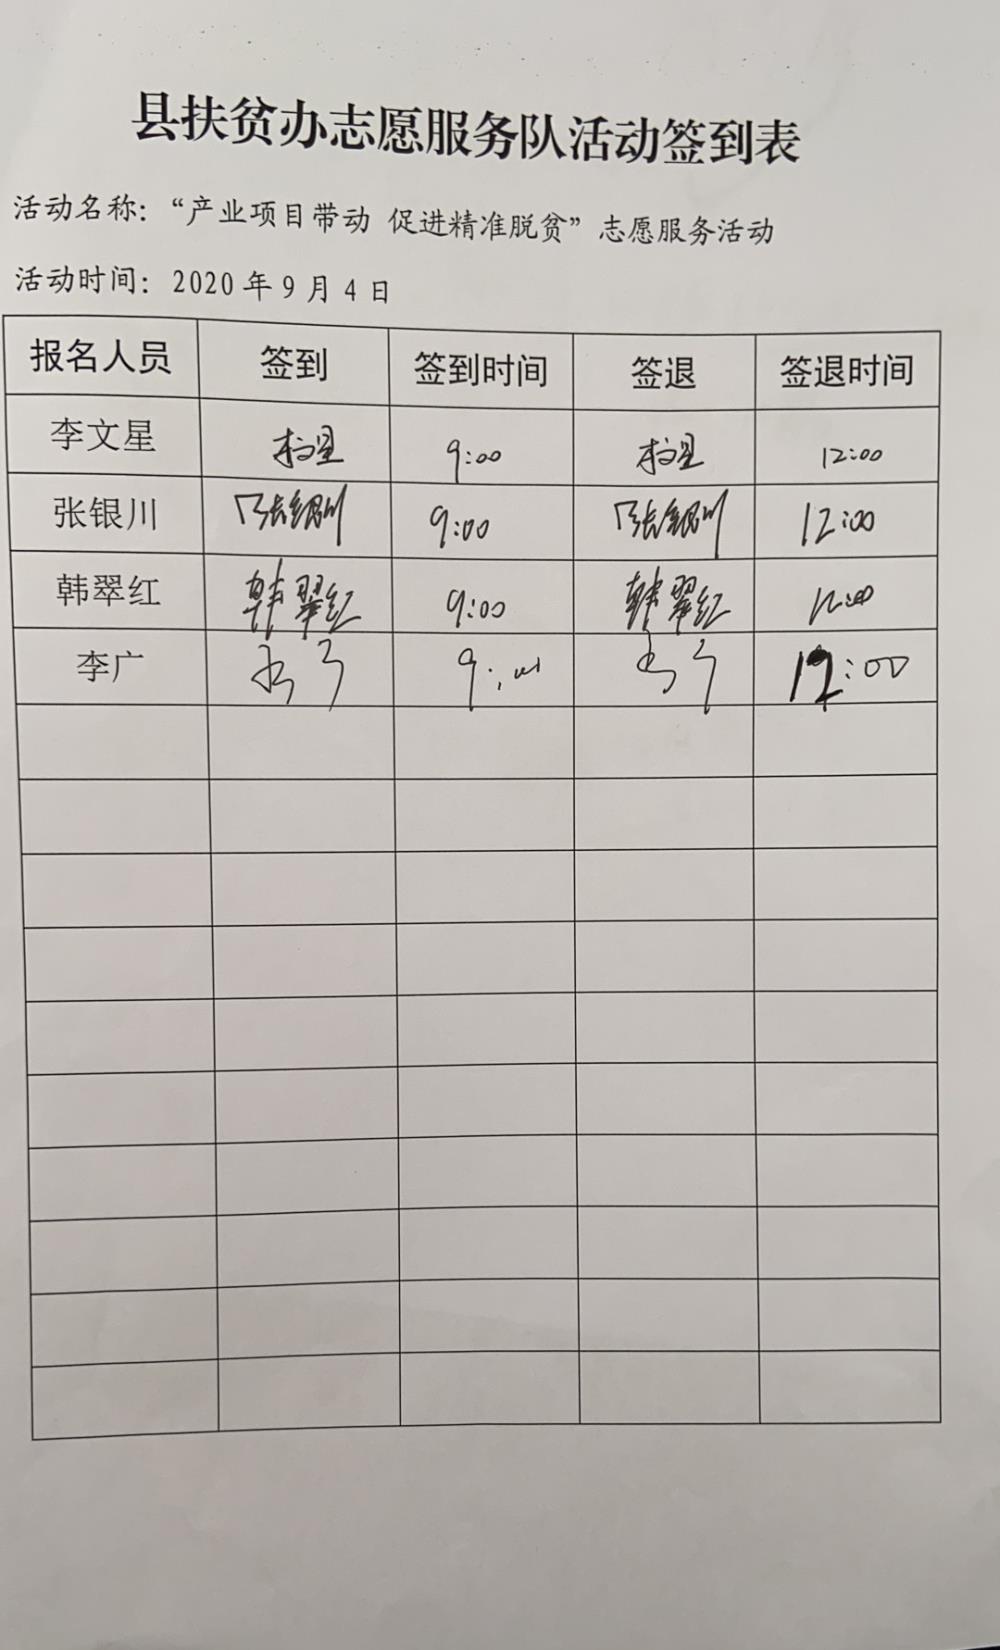 县扶贫办志愿服务队活动签到表
活动名称：“产业项目带动 促进精准脱贫”志愿服务活动
活动时间：2020年9月4日
报名人员 签到 签到时间 签退 签退时间
李文星 李文星 9:00 李文星 12:00
张银川 张银川 9:00 张银川 12:00
韩翠红 韩翠红 9:00 韩翠红 12:00
李广 李广 9:00 李广 12:00